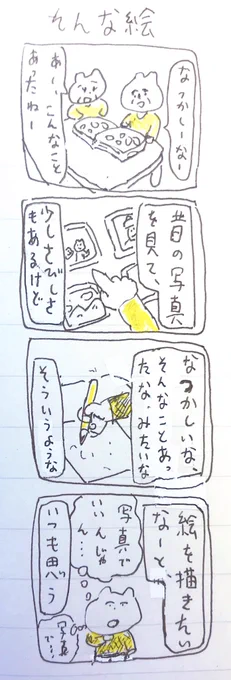 そんな絵
なつかしーなー
あー、こんなこと
あったねー
昔の写真
を見て、
少しさびしさ
もあるけど
なつかしいな、
そんなことあっ
たな、みたいな
そういうような
絵を描きたい
なーと、
写真で
いいんじゃ
ん…
いつも思う
写真
で…